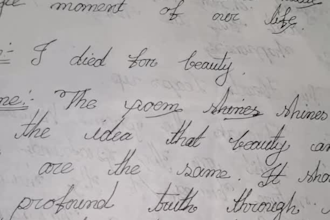 moment of our life.
:- I died for beauty.
me:- The poem shines shines
the idea that beauty an
are the same. It sho
profound truth through